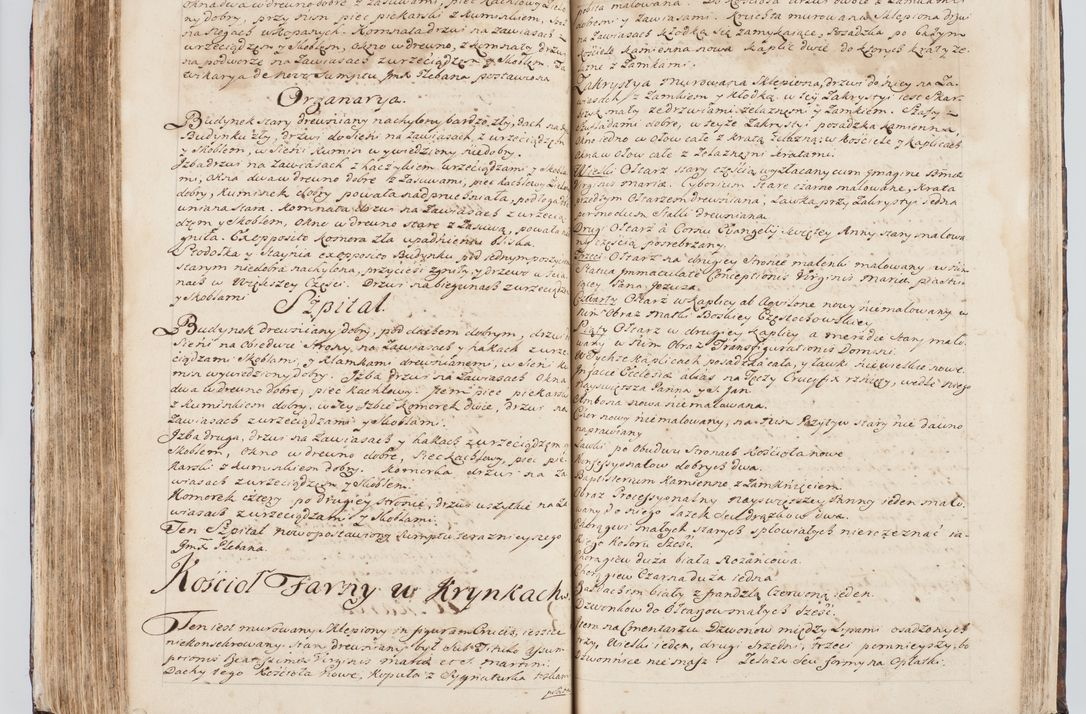 okna dwa w drewno dobre z Zasuwami, piec kachlowy zielo
ny dobry, przy nim piec piekarski z kuminkiem,
na Slegach wkopanych. Komnata drzwi na zawiasach z
wrzeciądzem y Skoblem, okno w drewno, z komnaty drzwi
na podworze na Zawiasach z wrzeciądzem y Skoblem. Ta
wikarya de novo Sumptu Jmx Plebana postawiona
Organarya.
Budynek stary drewniany nachylony bardzo zły, Dach na
Budynku zły, drzwi do Sieni na zawiasach z wrzeciądzem
y Skoblem, w Sieni kumin wywiedziony niedobry.
Jzba drzwi na zawiasach z haczykiem wrzeciądzami y Skobla
mi, okna dwa w drewno dobre z Zasuwami, piec kachlowy Zielon
dobry, kuminek dobry powała nadpruchniała, podłoga dre
wniana stara. Komnata drzwi na Zawiasach z wrzecią
dzem y Skoblem, okno w drewno stare z Zasuwą, powała
zgniła. Ex opposito komora zła upadnienia bliska.
Stodołka y Staynia ex opposito Budynku pod jednym poszyciem
starym niedobra nachylona, przycieśi zgniły y drzewo w Scia
nach w Większey Części. Drzwi na biegunach z wrzeciądze
y Skoblami
Szpital.
Budynek drewniany dobry, pod dachem dobrym, drzwi
Sieni na Obiedwie Strony, na Zawiasach y hakach z wrze
ciądzami Skoblami, y klamkami drewnianemi, w Sieni ku
min wywiedziony dobry. Jzba drzwi na Zawiasach okna
dwa w drewno dobre, piec kachlowy. Item piec piekarski
z kuminkiem dobry, w tey Jzbie komorek dwie, drzwi na
Zawiasach z wrzeciądzami y Skoblami.
Jzba druga, drzwi na Zawiasach y hakach z wrzeciądzem y
Skoblem, okno w drewno dobre, Piec kachlowy, piec pie
karski z kuminkiem dobry. Komorka drzwi na za
wiasach z wrzeciądzem y Skoblem.
Komorek cztery po drugiey stronie, drzwi wszytkie na Za
wiasach z wrzeciądzami y Skoblami.
Ten Szpital nowo postawiony Sumptu teraznieyszego
Jmx Plebana.
Kościoł Farny w Krynkach.
Ten iest murowany Sklepiony in figuram Crucis, ieszcze
niekonsekrowany. Stary drewniany był Sub Titulo Assum
ptionis Beatissimae Virginis Mariae et S. Martini.
Dachy tego Kościoła Nowe, Kopuła z Sygnaturka
pobita
pobita malowana. Do kościoła drzwi dwoie z Zamkami
dobremi y Zawiasami. Kruchta murowana Sklepiona drzwi
na Zawiasach kłodką się zamykaiące, Posadzka po całym
kościele kamienna nowa kaplic dwie do ktorych kraty że
lazne z Zamkami.
Zakrystya murowana Sklepiona, drzwi do niey na Za
wiasach z Zamkiem y kłodką. w tey Zakrystyi iest skar
byk mały ze drzwiami żelaznemi y Zamkiem. Szafy z
Szufladami dobre, w teyże Zakrystyi posadzka kamienna,
okno iedno w ołow całe z kratą żelazną; w kościele y kaplicach
okna w ołow całe z Zelaznemi kratami.
Wielki Ołtarz stary częścią wyzłacany cum Imagine Bmae
Virginis Mariae. Cyborium stare czarno malowane, krata
przed tym Ołtarzem drewniana, Ławka przy Zakrystyi iedna
per modum Stalli drewniana.
Drugi Ołtarz à Cornu Evangelij Swiętey Anny stary malowa
ny częścią posrebrzany.
Trzeci Ołtarz na drugiey stronie malenki malowany w nim
Statua Immaculatae Conceptionis Virginis Mariae
iącey Pana Jezusa.
Czwarty Ołtarz w kaplicy ab Aquilone nowy niemalowany w
nim Obraz Matki Boskiey Częstochowskiey.
Piąty Ołtarz w drugiey kaplicy a meridie stary malo
wany w nim Obraz Transfigurationis Domini.
W Tychże kaplicach posadzka cała, y ławki niewielkie nowe.
In facie Ecclesiae alias na Tęczy Crucifix rznięty, wedle niego
Nayświętsza Panna y S. Jan.
Ambona nowa niemalowana.
Chor nowy niemalowany, na nim Pozytyw stary nie dawno
naprawiany.
Ławki po Obudwu stronach kościoła nowe.
Konfessyonałow dobrych dwa.
Baptisterium kamienne z Zamknięciem.
Obraz Processyonalny Nayswiętszey Panny ieden malo
wany do niego Lasek seu drązkow dwa.
Chorągwi małych starych spłowiałych nierozeznać ia
kiego koloru Sześć.
Chorągiew duza biała Rożańcowa.
Chorągiew Czarna duża iedna
Baldachim biały z frandzlą Czerwoną ieden.
Dzwonkow do Ołtarzow małych Sześć.
Item na Cmentarzu Dzwonow między Lipami osadzonych
trzy, Wielki ieden, drugi Sredni, trzeci pomnieyszy, bo
Dzwonnice niemasz. Zelaza seu formy na Opłatki.